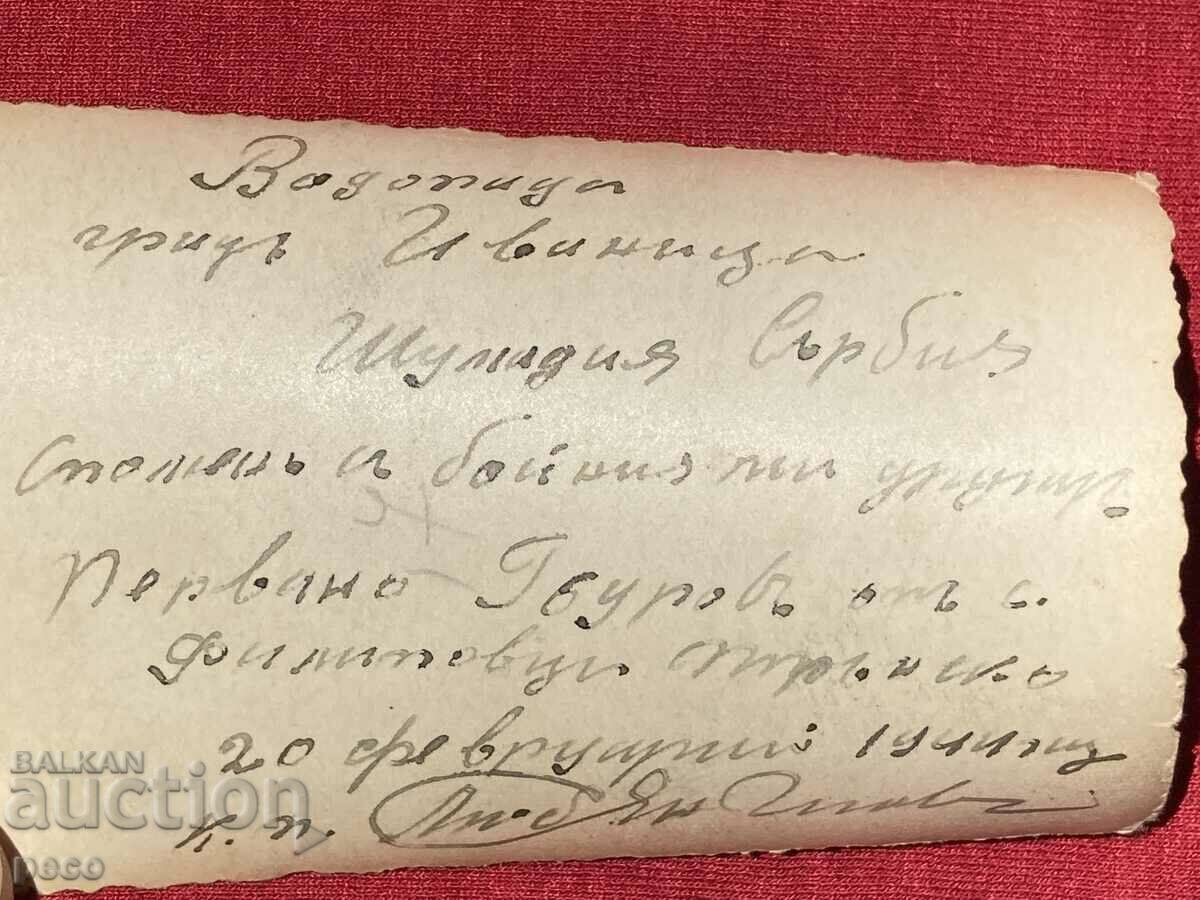 Водопада
градъ Иваница
Шумадия Сърбия
Споменъ съ бойния ми другар
Первано Гзуровъ отъ с.
Филиповци Трънско
20 февруарий 1944 год
к. п. Люб
BALKAN
auction
peco